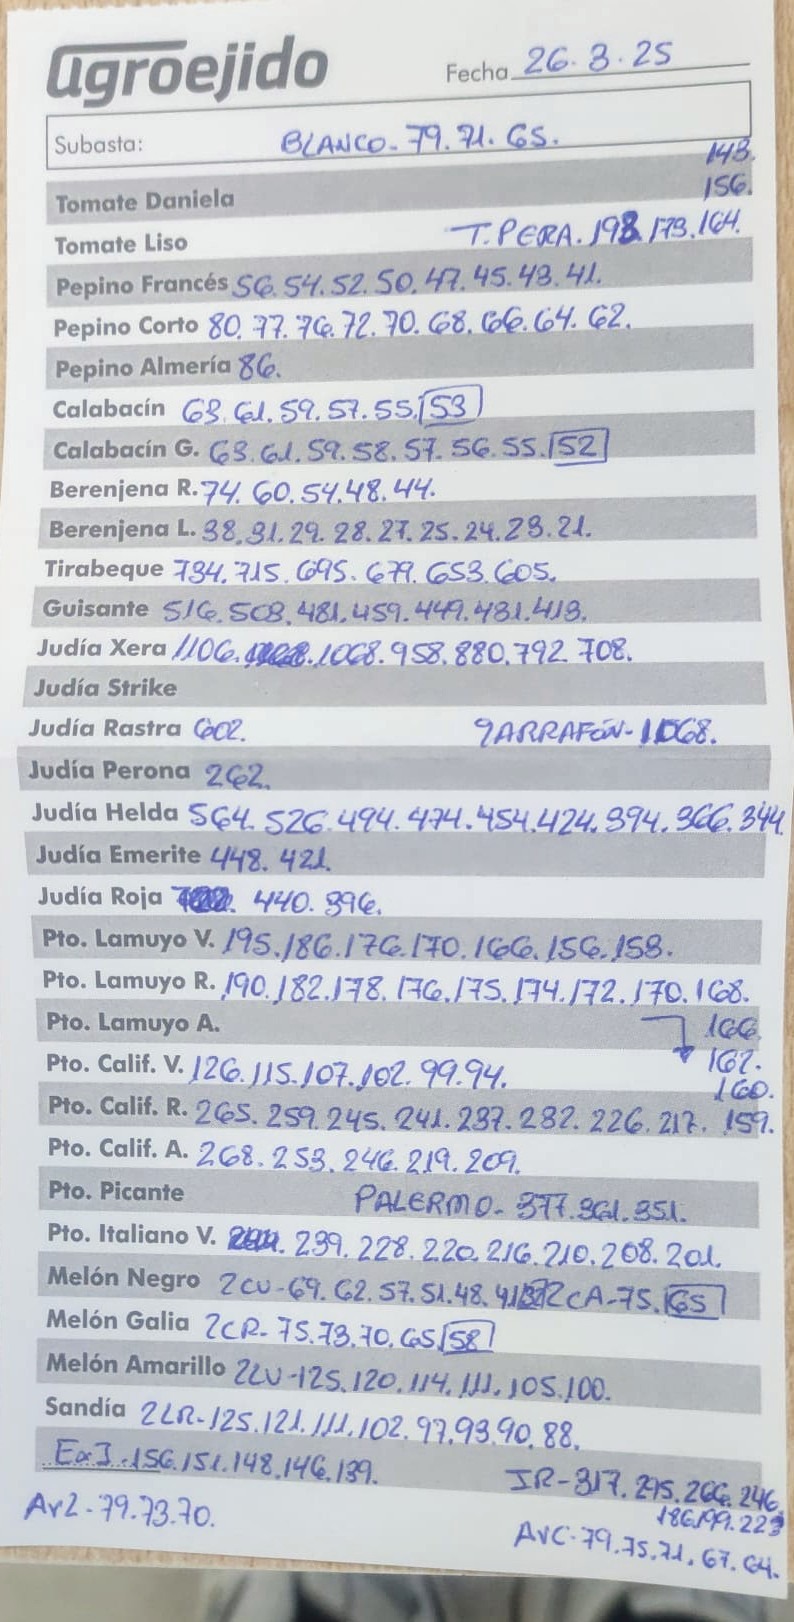 agroejido
Fecha 26.3.25
Subasta: BLANCO-79.71.65.
148.
Tomate Daniela 156.
Tomate Liso T.PERA.198.173.164.
Pepino Francés 56.54.52.50.47.45.43.41.
Pepino Corto 80.77.76.72.70.68.66.64.62.
Pepino Almería 86.
Calabacín 63.61.59.57.55.53
Calabacín G. 63.61.59.58.57.56.55.52
Berenjena R. 74.60.54.48.44.
Berenjena L. 38.31.29.28.27.25.24.23.21.
Tirabeque 734.715.695.679.653.605.
Guisante 516.503.481.459.449.431.413.
Judía Xera 1106.1068.958.880.792.708.
Judía Strike
Judía Rastra 602. GARRAFÓN-1068.
Judía Perona 262.
Judía Helda 564.526.494.474.454.424.394.366.344
Judía Emerite 448.421.
Judía Roja 440.396.
Pto. Lamuyo V. 195.186.176.170.166.156.153.
Pto. Lamuyo R. 190.182.178.176.175.174.172.170.168.
Pto. Lamuyo A. 166.
Pto. Calif. V. 126.115.107.102.99.94. 162.
160.
Pto. Calif. R. 265.259.245.241.237.232.226.217. 159.
Pto. Calif. A. 268.253.246.219.209.
Pto. Picante PALERMO-377.361.351.
Pto. Italiano V. 239.228.220.216.210.208.201.
Melón Negro 2CU-69.62.57.51.48.41 2CA-75.65
Melón Galia 2CR-75.73.70.65 58
Melón Amarillo 2LU-125.120.114.111.105.100.
Sandía 2LR-125.121.111.102.97.93.90.88.
ExJ-156.151.148.146.139.
JR-317.295.266.246.
186.199.223
Av2-79.73.70.
AVC-79.75.71.67.64.